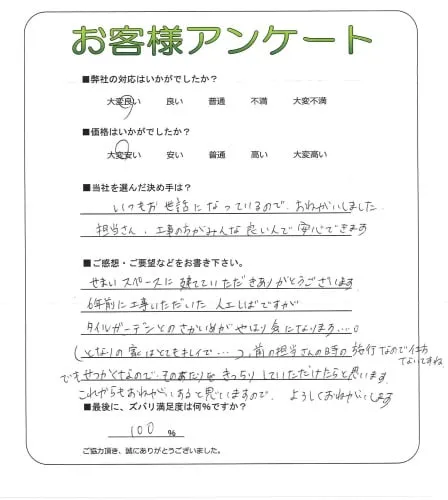 お客様アンケート
■弊社の対応はいかがでしたか?
大変良い 良い 普通 不満 大変不満
■価格はいかがでしたか?
大変安い 安い 普通 高い 大変高い
■当社を選んだ決め手は?
いつもお世話になっているので、おねがいしました
担当さん、工事の方がみんな良い人で安心できます
■ご感想・ご要望などをお書き下さい。
せまいスペースに建てていただきありがとうございます
6年前に工事いただいた人工しばですが
タイルガーデンとのさかいめがやはり気になります…。
(となりの家はとてもキレイで…つ、前の担当さんの時の施行なので仕方ないですね
でもせっかくなので、そのあたりをきっちりしていただけたらと思います
これからもおねがいすると思っていますので、よろしくおねがいします
■最後に、ズバリ満足度は何%ですか?
100 %
ご協力頂き、誠にありがとうございました。